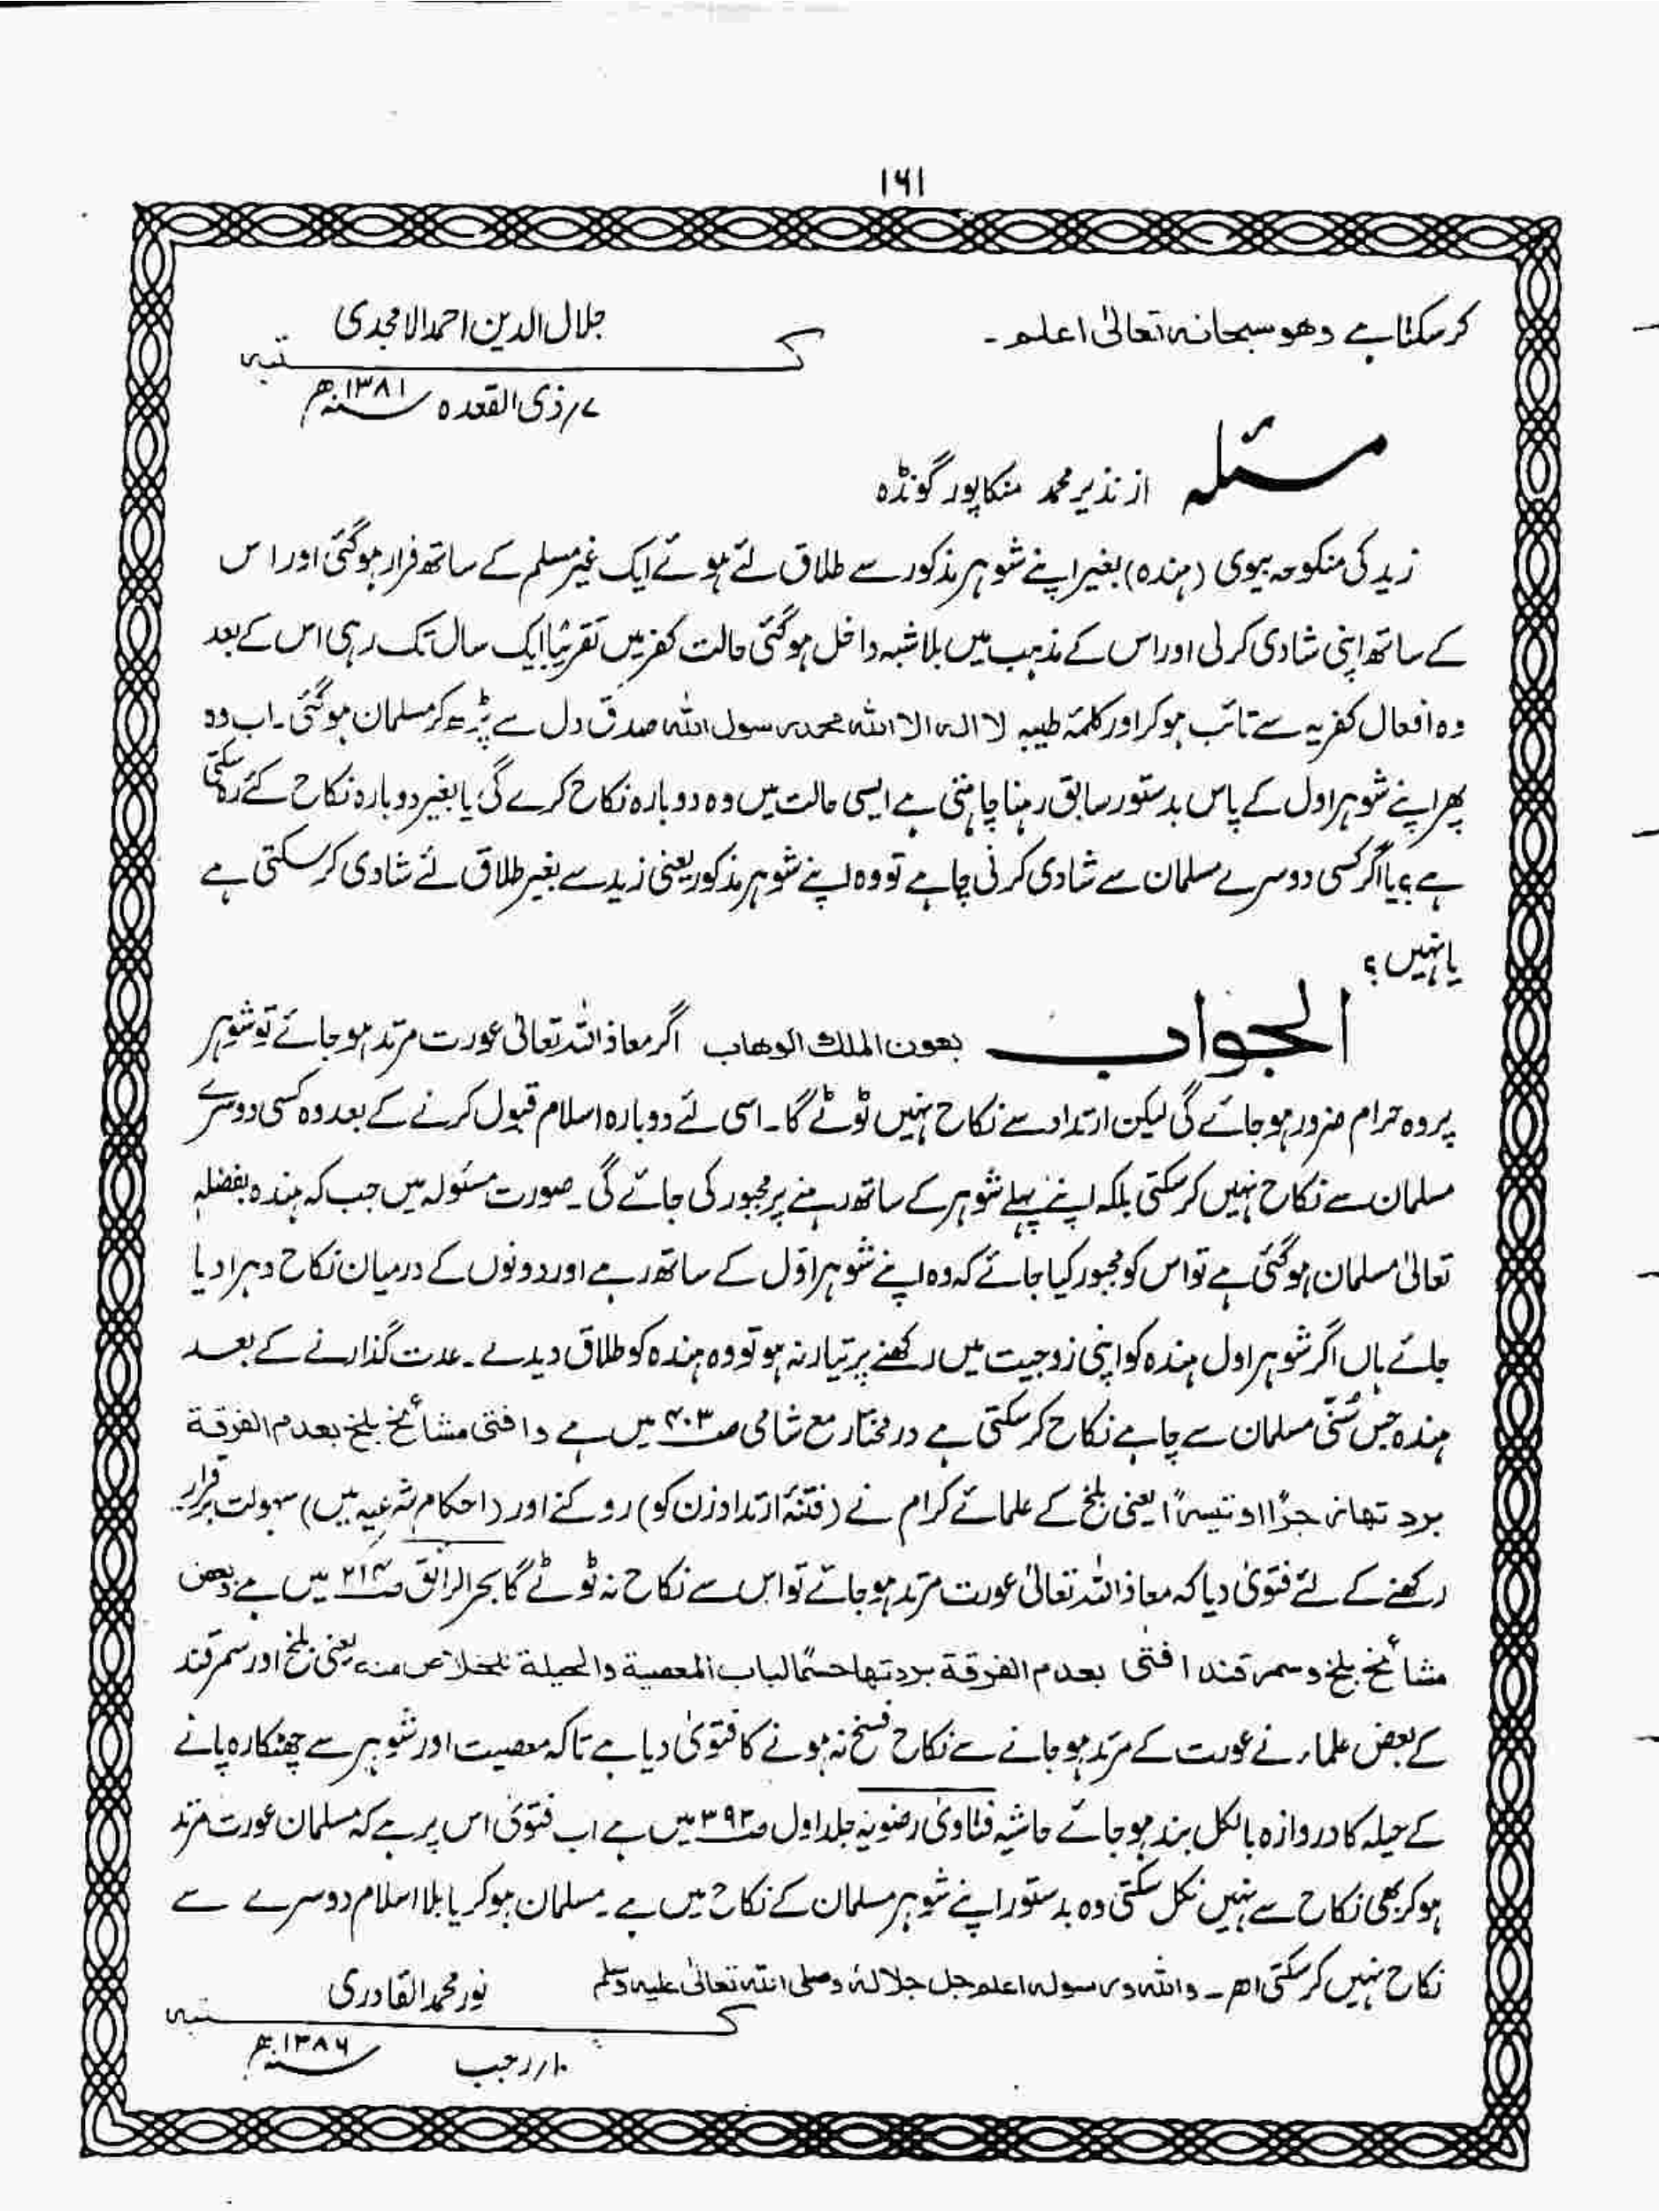 ۱۶۱
کرسکتا ہے وھو سبحانہ تعالیٰ اعلم۔
جلال الدین احمد الامجدی
کتبہ
۷؍ ذی القعدہ سنہ ۱۳۸۱ھ
مسئلہ از نذیر محمد منکاپور گونڈہ
زید کی منکوحہ بیوی (ہندہ) بغیر اپنے شوہر مذکور سے طلاق لئے ہوئے ایک غیر مسلم کے ساتھ فرار ہوگئی اور اس
کے ساتھ اپنی شادی کرلی اور اس کے مذہب میں بلاشبہ داخل ہوگئی حالت کفر میں تقریباً ایک سال تک رہی اس کے بعد
وہ افعال کفریہ سے تائب ہوکر اور کلمۂ طیبہ لا الہ الا اللہ محمد رسول اللہ صدق دل سے پڑھ کر مسلمان ہوگئی۔ اب وہ
پھر اپنے شوہر اول کے پاس بدستور سابق رہنا چاہتی ہے ایسی حالت میں وہ دوبارہ نکاح کرے گی یا بغیر دوبارہ نکاح کئے رہ سکتی
ہے؟ یا اگر کسی دوسرے مسلمان سے شادی کرنی چاہے تو وہ اپنے شوہر مذکور یعنی زید سے بغیر طلاق لئے شادی کرسکتی ہے
یا نہیں؟
الجواب بعون الملک الوھاب اگر معاذ اللہ تعالیٰ عورت مرتد ہوجائے تو شوہر
پر وہ حرام ضرور ہوجائے گی لیکن ارتداد سے نکاح نہیں ٹوٹے گا۔ اسی لئے دوبارہ اسلام قبول کرنے کے بعد وہ کسی دوسرے
مسلمان سے نکاح نہیں کرسکتی بلکہ اپنے پہلے شوہر کے ساتھ رہنے پر مجبور کی جائے گی۔ صورت مسئولہ میں جب کہ ہندہ بفضلہ
تعالیٰ مسلمان ہوگئی ہے تو اس کو مجبور کیا جائے کہ وہ اپنے شوہر اوّل کے ساتھ رہے اور دونوں کے درمیان نکاح دہرا دیا
جائے ہاں اگر شوہر اول ہندہ کو اپنی زوجیت میں رکھنے پر تیار نہ ہو تو وہ ہندہ کو طلاق دیدے۔ عدت گذارنے کے بعد
ہندہ جس سُنّی مسلمان سے چاہے نکاح کرسکتی ہے درمختار مع شامی صـ۴۰۳ میں ہے وافتی مشائخ بلخ بعدم الفرقۃ
بردتھا زجرًا او تیسیرًا یعنی بلخ کے علمائے کرام نے (فتنۂ ارتداد زن کو) روکنے اور (احکام شرعیہ میں) سہولت برقرار
رکھنے کے لئے فتویٰ دیا کہ معاذ اللہ تعالیٰ عورت مرتد ہوجائے تو اس سے نکاح نہ ٹوٹے گا بحرالرائق صـ۲۱۴ میں ہے وبعض
مشائخ بلخ و سمرقند افتی بعدم الفرقۃ بردتھا حسمًا لباب المعصیۃ والحیلۃ للخلاص منہ یعنی بلخ اور سمرقند
کے بعض علماء نے عورت کے مرتد ہوجانے سے نکاح فسخ نہ ہونے کا فتویٰ دیا ہے تاکہ معصیت اور شوہر سے چھٹکارہ پانے
کے حیلہ کا دروازہ بالکل بند ہوجائے حاشیہ فتاویٰ رضویہ جلد اول صـ۳۹۳ میں ہے اب فتویٰ اس پر ہے کہ مسلمان عورت مرتد
ہوکر بھی نکاح سے نہیں نکل سکتی وہ بدستور اپنے شوہر مسلمان کے نکاح میں ہے۔ مسلمان ہوکر یا بلا اسلام دوسرے سے
نکاح نہیں کرسکتی اھ۔ واللہ ورسولہ اعلم جل جلالہٗ وصلی اللہ تعالیٰ علیہ وسلم
نور محمد القادری
کتبہ
۱۰؍ رجب سنہ ۱۳۸۶ھ